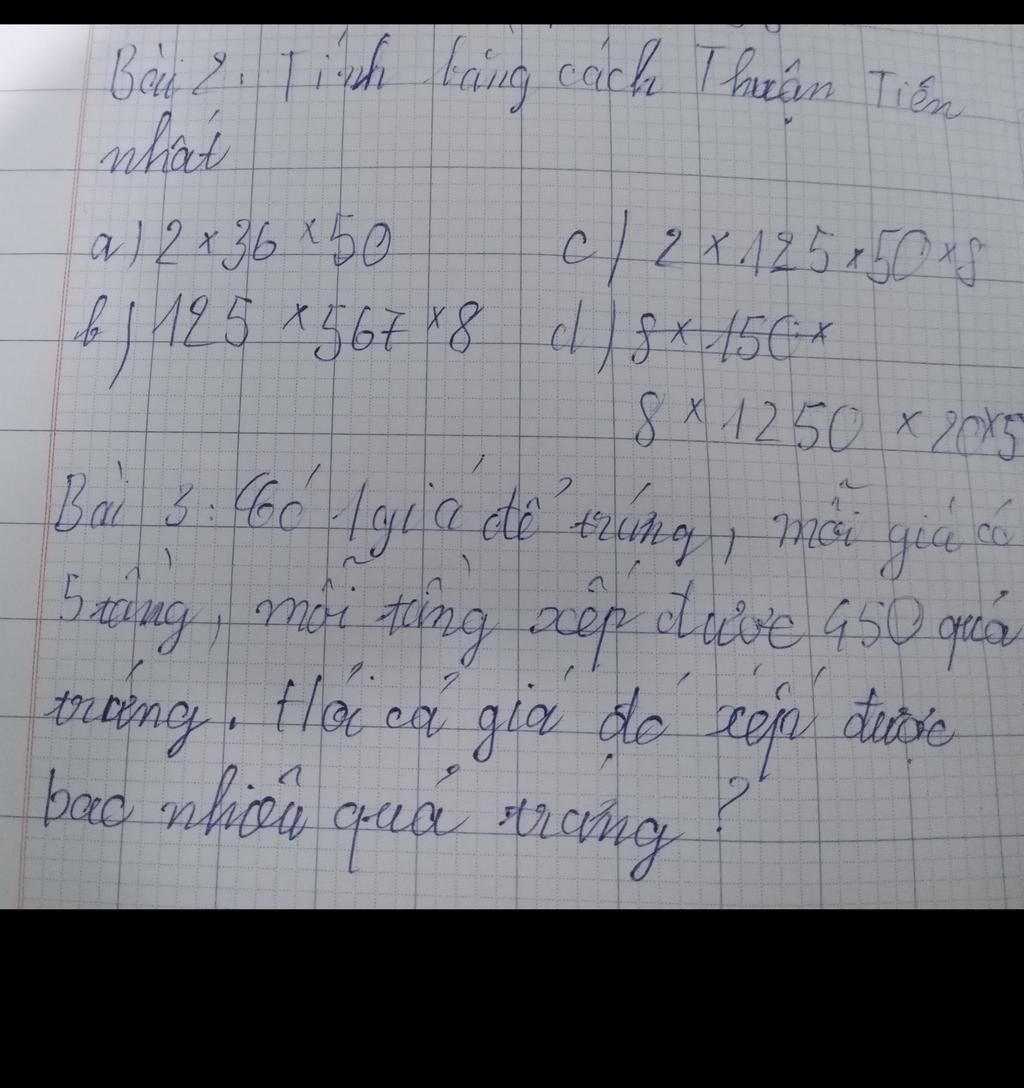 Bài 2. Tính bằng cách Thuận Tiện
nhất
a) 2 × 36 × 50
c) 2 × 125 × 50 × 8
b) 125 × 567 × 8
d) 8 × 150 ×
8 × 1250 × 20 × 5
Bài 3: Có 1 giá để trứng, mỗi giá có
5 tầng, mỗi tầng xếp được 450 quả
trứng. Hỏi cả giá đó xếp được
bao nhiêu quả trứng?